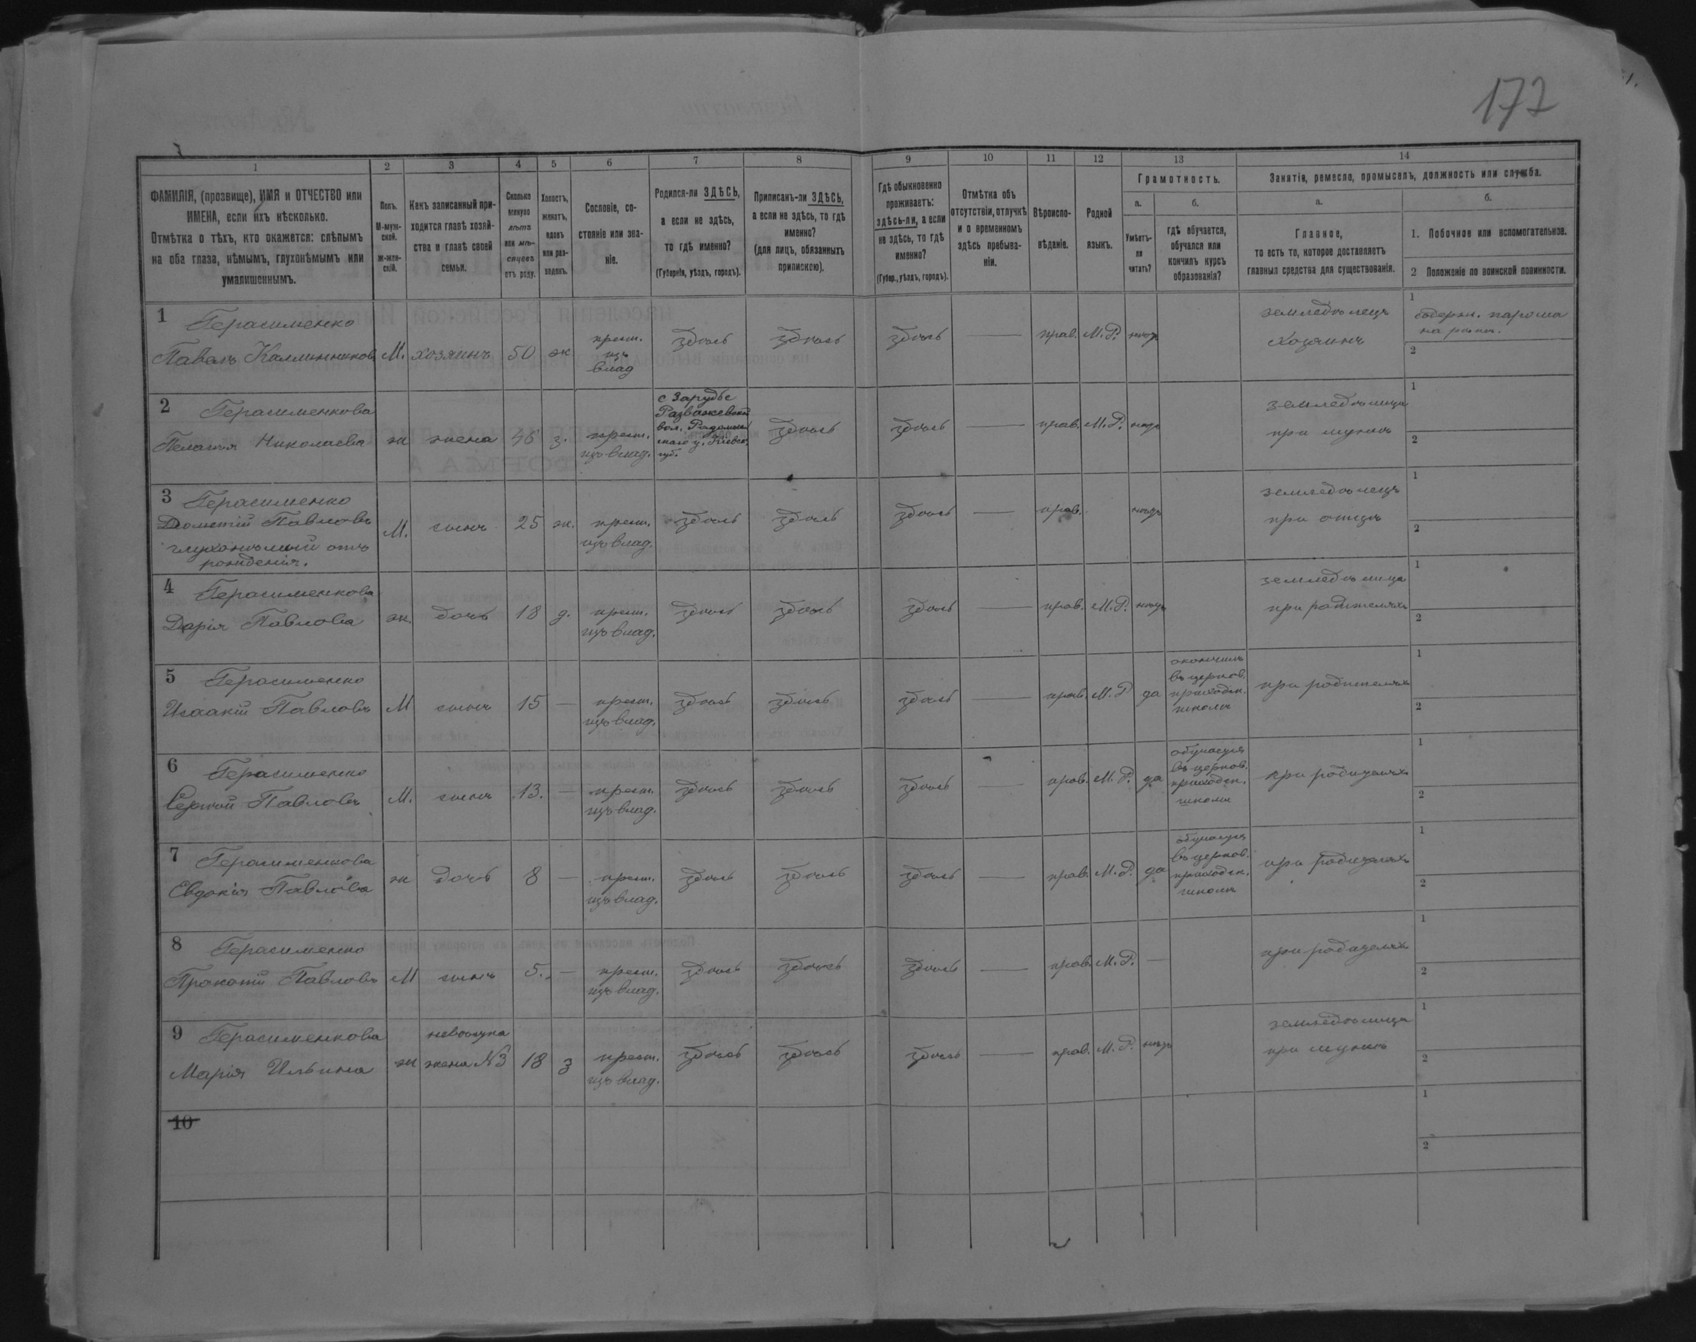 172
1
2
3
4
5
6
7
8
9
10
11
12
13
14
ФАМИЛІЯ, (прозвище), ИМЯ и ОТЧЕСТВО или
ИМЕНА, если ихъ нѣсколько.
Отмѣтка о тѣхъ, кто окажется: слѣпымъ
на оба глаза, нѣмымъ, глухонѣмымъ или
умалишеннымъ.
Полъ.
М-муж-
ской.
ж-жен-
скій.
Какъ записанный при-
ходится главѣ хозяй-
ства и главѣ своей
семьи.
Сколько
минуло
лѣтъ
или мѣ-
сяцевъ
отъ роду.
Холостъ,
женатъ,
вдовъ
или раз-
веденъ.
Сословіе, со-
стояніе или зва-
ніе.
Родился-ли ЗДѢСЬ,
а если не здѣсь,
то гдѣ именно?
(Губернія, уѣздъ, городъ).
Приписанъ-ли ЗДѢСЬ,
а если не здѣсь, то гдѣ
именно?
(для лицъ, обязанныхъ
припискою).
Гдѣ обыкновенно
проживаетъ:
здѣсь-ли, а если
не здѣсь, то гдѣ
именно?
(Губер., уѣздъ, городъ).
Отмѣтка объ
отсутствіи, отлучкѣ
и о временномъ
здѣсь пребыва-
ніи.
Вѣроиспо-
вѣданіе.
Родной
языкъ.
Грамотность.
а.
Умѣетъ-
ли
читать?
б.
гдѣ обучается,
обучался или
кончилъ курсъ
образованія?
Занятія, ремесло, промыселъ, должность или служба.
а.
Главное,
то есть то, которое доставляетъ
главныя средства для существованія.
б.
1. Побочное или вспомогательное.
2 Положеніе по воинской повинности.
1 Герасименко земледѣлецъ 1
Павелъ Калинниковъ М. хозяинъ 50 ж крест. изъ влад здѣсь здѣсь здѣсь — прав. М.Р. нѣтъ хозяинъ
2
2 Герасименкова с Зарудье земледѣлица 1
Пелагія Николаева ж жена 48 з. крест. изъ влад. здѣсь здѣсь — прав. М.Р. нѣтъ при мужѣ 2
3 Герасименко земледѣлецъ 1
Дометій Павловъ М. сынъ 25 ж. крест. изъ влад. здѣсь здѣсь здѣсь — прав. нѣтъ при отцѣ 2
глухонѣмый отъ
рожденія.
4 Герасименкова земледѣлица 1
Дарія Павлова ж. дочь 18 д. крест. изъ влад. здѣсь здѣсь здѣсь — прав. М.Р. нѣтъ при родителяхъ 2
5 Герасименко окончилъ 1
Исаакій Павловъ М сынъ 15 — крест. изъ влад. здѣсь здѣсь здѣсь — прав. М.Р да въ церков. приходск. школѣ при родителяхъ 2
6 Герасименко обучается 1
Сергій Павловъ М. сынъ 13. — крест. изъ влад. здѣсь здѣсь здѣсь — прав. М.Р. да въ церков. приходск. школѣ при родителяхъ 2
7 Герасименкова обучается 1
Евдокія Павлова ж дочь 8 — крест. изъ влад. здѣсь здѣсь здѣсь — прав. М.Р. да въ церков. приходск. школѣ при родителяхъ 2
8 Герасименко 1
Прокопій Павловъ М сынъ 5. — крест. изъ влад. здѣсь здѣсь здѣсь — прав. М.Р. — при родителяхъ 2
9 Герасименкова невѣстка земледѣлица 1
Марія Ильина ж жена №3 18 з крест. изъ влад. здѣсь здѣсь здѣсь — прав. М.Р. нѣтъ при мужѣ 2
10 1
2